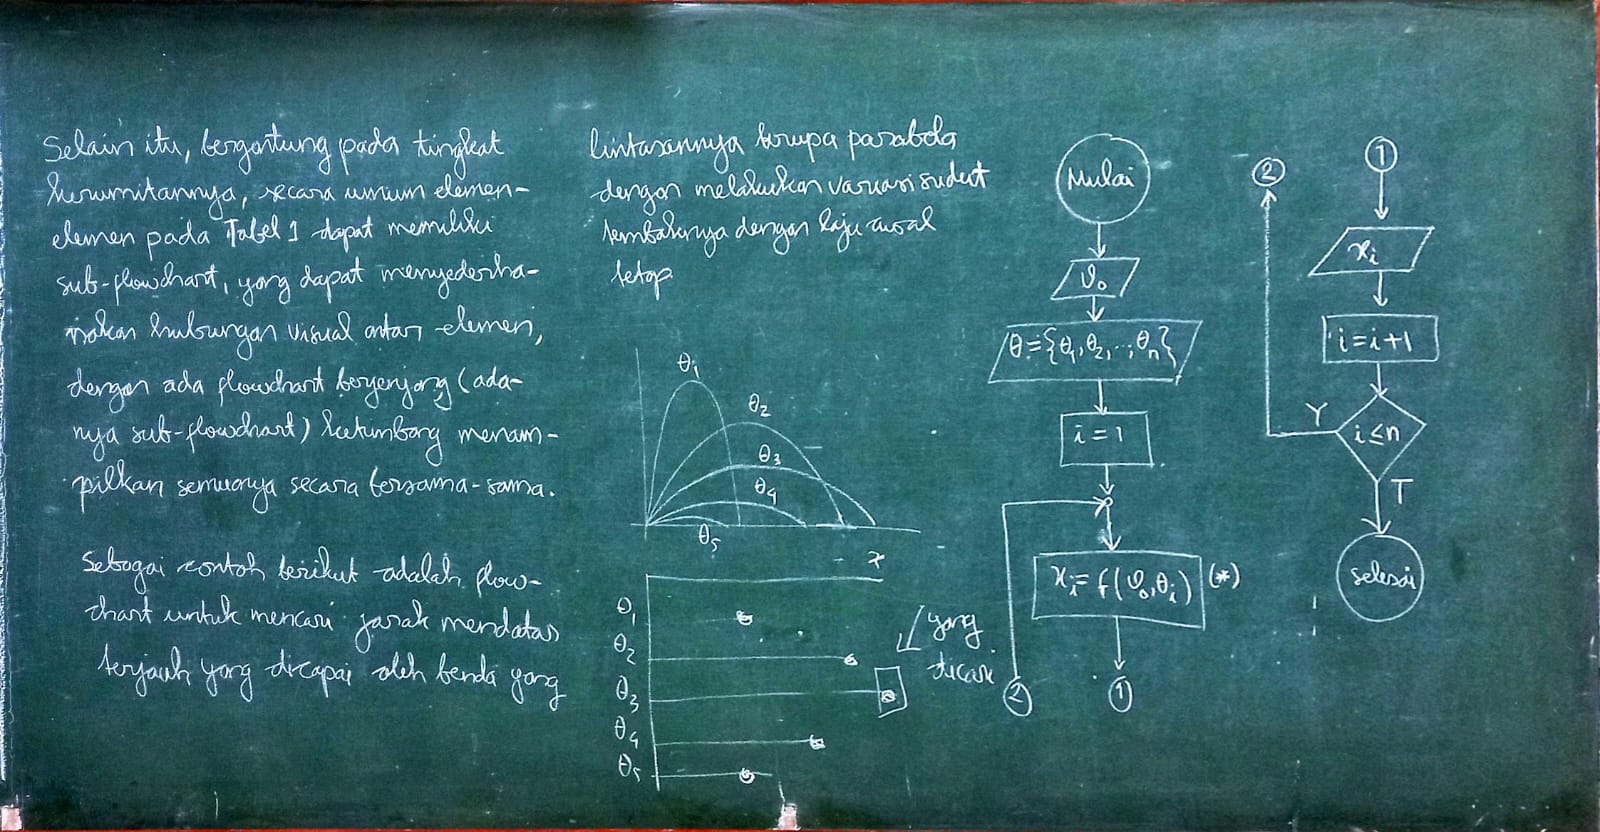 Selain itu, bergantung pada tingkat
kerumitannya, secara umum elemen-
elemen pada Tabel 1 dapat memiliki
sub-flowchart, yang dapat menyederha-
nakan hubungan visual antar elemen,
dengan ada flowchart berjenjang (ada-
nya sub-flowchart) ketimbang menam-
pilkan semuanya secara bersama-sama.
Sebagai contoh berikut adalah flow-
chart untuk mencari jarak mendatar
terjauh yang dicapai oleh benda yang
lintasannya berupa parabola
dengan melakukan variasi sudut
tembaknya dengan laju awal
tetap
θ₁
θ₂
θ₃
θ₄
θ₅
x
θ₁
θ₂
θ₃
θ₄
θ₅
yang
dicari
Mulai
v₀
θ = {θ₁, θ₂, .., θₙ}
i = 1
xᵢ = f(v₀, θᵢ) (*)
2
1
2
1
xᵢ
i = i+1
Y
i ≤ n
T
selesai